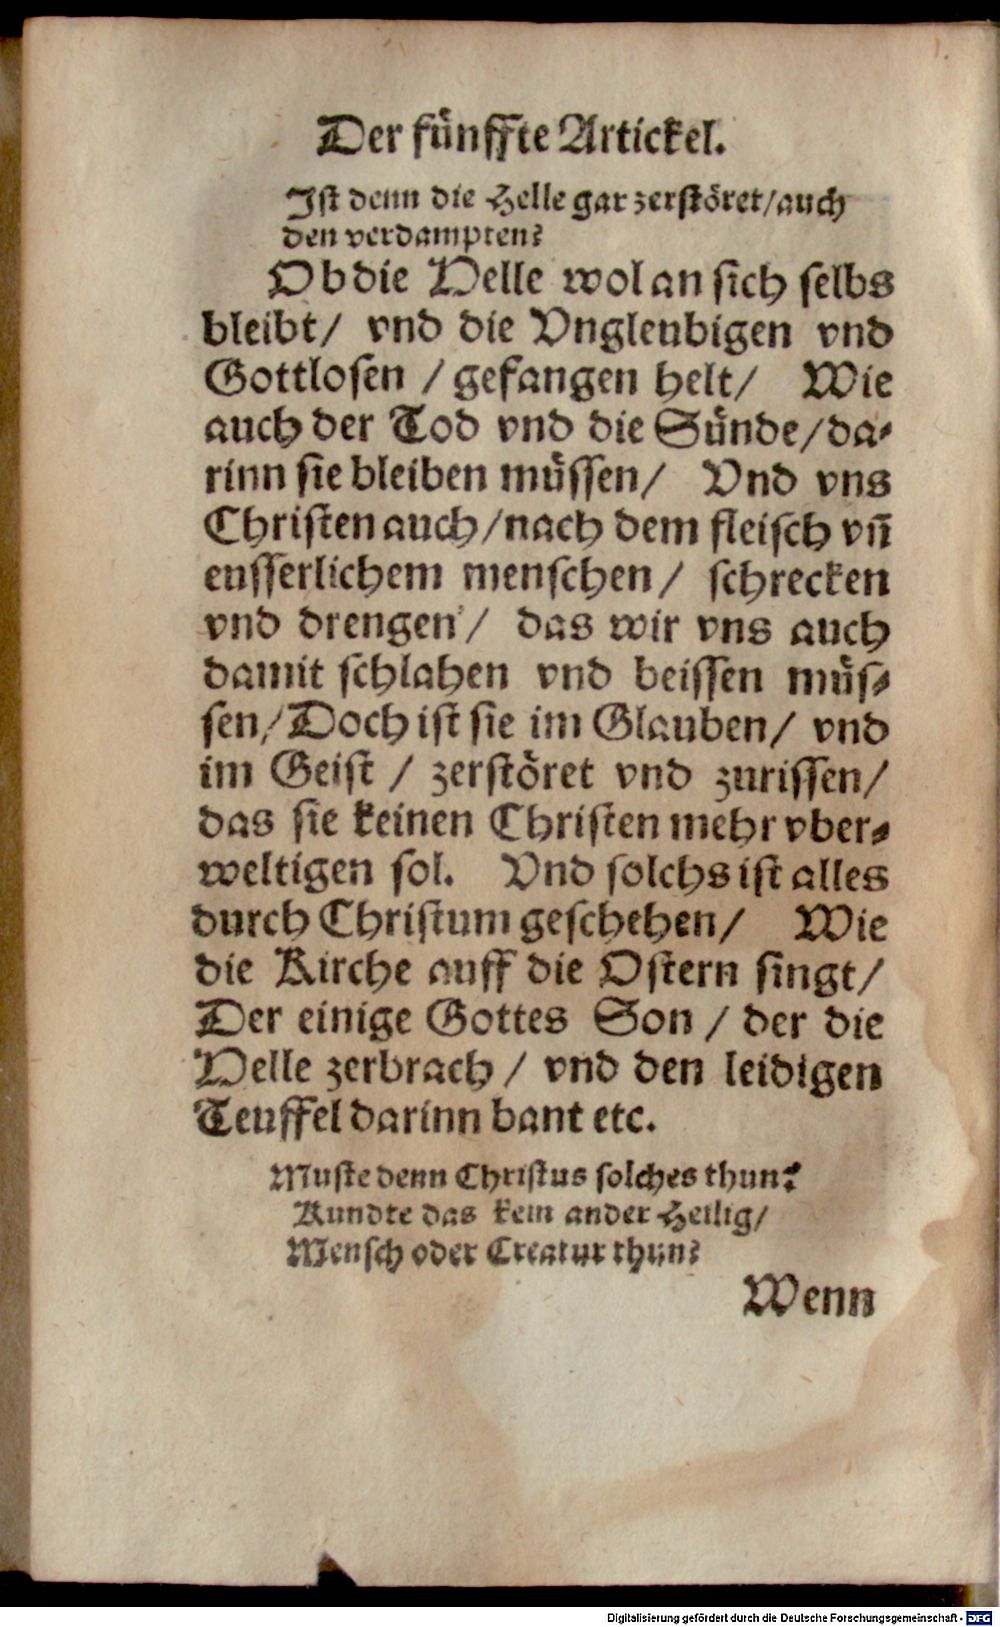 Der fünffte Artickel.
Jst denn die Helle gar zerstöret/auch
den verdampten?
Ob die Helle wol an sich selbs
bleibt/ vnd die Vngleubigen vnd
Gottlosen / gefangen helt/ Wie
auch der Tod vnd die Sünde/da-
rinn sie bleiben müssen/ Vnd vns
Christen auch/nach dem fleisch vn̄
eusserlichem menschen / schrecken
vnd drengen / das wir vns auch
damit schlahen vnd beissen müs-
sen/Doch ist sie im Glauben/ vnd
im Geist / zerstöret vnd zurissen/
das sie keinen Christen mehr vber-
weltigen sol. Vnd solchs ist alles
durch Christum geschehen/ Wie
die Kirche auff die Ostern singt/
Der einige Gottes Son / der die
Helle zerbrach / vnd den leidigen
Teuffel darinn bant etc.
Muste denn Christus solches thun?
Kundte das kein ander Heilig/
Mensch oder Creatur thun?
Wenn
Digitalisierung gefördert durch die Deutsche Forschungsgemeinschaft - DFG